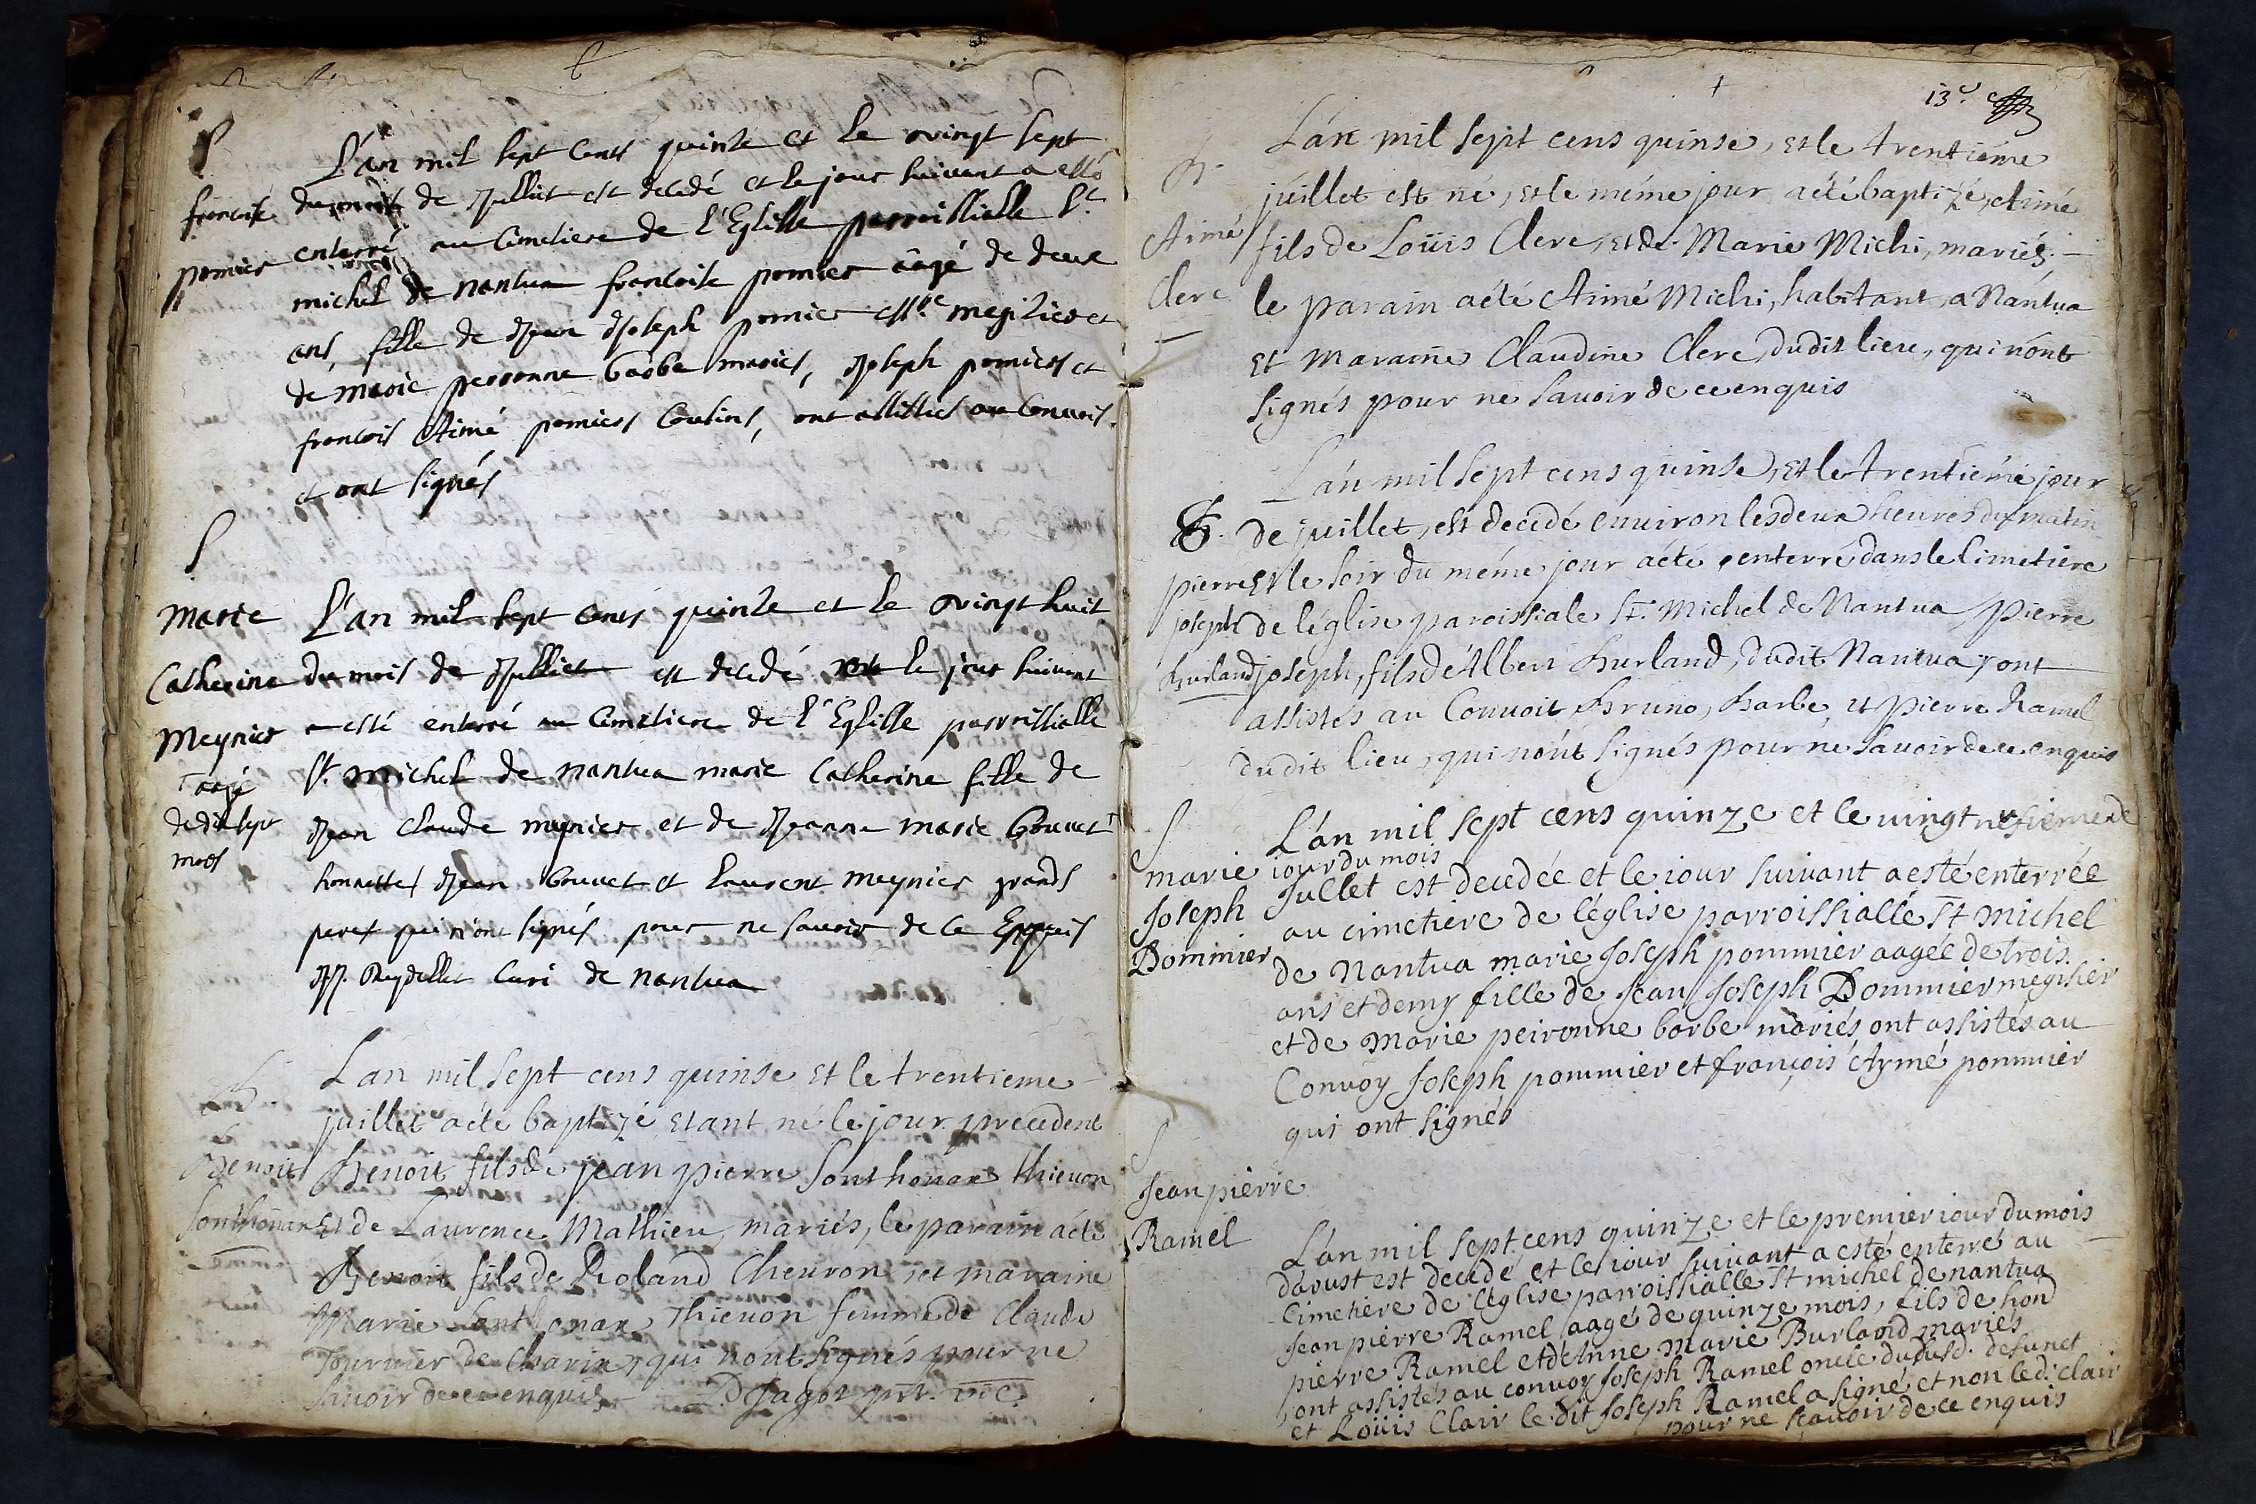 S
L'an mil sept cents quinze et le vingt sept
francoise du mois de Jullist est decedé et le jour suivant a esté
pomier enterré au Cimetiere de l'Eglisse parroissialle St
michel de nantua francoise pomier aâgé de deux
ans, fille de Jean Joseph pomier megizier et
de marie peronne barbe mariés, Joseph pomier et
francois Aimé pomier Cousins, ont assistés au Convois
et ont signés
S
marie L'an mil sept cents quinze et le vingt huit
Catherine du mois de Julliet est decedé et le jour suivant
Meynier a esté enterré au Cimetiere de l'Eglisse parroissialle
aâgé St. michel de nantua marie Catherine fille de
de dix sept Jean Claude meynier et de Jeanne marie bouvet
mois
honnestes Jean bouvet et Laurent meynier grands
peres qui n'ont signés pour ne savoir de ce Enquis
JJ. Reydellet Curé de nantua
B.
L'an mil sept cens quinse et le trentieme
juillet a été baptizé etant né le jour precedent
Benoit Benoit fils de jean pierre Sonthonax thievon
Sonthonax et de Laurence Mathieu, mariés, le parain a été
Benoit fils de Roland Chevron et maraine
Marie Sonthonax Thievon femme de Claude
Tournier de Charix, qui n'ont signés pour ne
savoir de ce enquis D Jagot ptr. vic.
13e.
B.
L'an mil sept cens quinse, et le trentiéme
juillet est né, et le méme jour a été baptizé, Aimé
Aimé fils de Loüis Clerc, et de Marie Michi, mariés;
Clerc le parain a été Aimé Michi, habitant a Nantua
et maraine Claudine Clerc, dudit lieu, qui n'ont
signés pour ne savoir de ce enquis
L'an mil sept cens quinse, et le trentiéme jour
S. de juillet, est decedé environ les deux heures du matin
pierre et le soir du méme jour a été enterré dans le cimetiere
joseph de l'église paroissiale St. Michel de Nantua, Pierre
Burland joseph, fils d'Albert Burland, dudit Nantua, y ont
assistés au Convoit Bruno, Barbe, et pierre Ramel
dudit lieu, qui n'ont signés pour ne savoir de ce enquis
S
L'an mil sept cens quinze et le vingt nefieme de
iour du mois
marie Jullet est decedée et le iour suivant a esté enterrée
Joseph au cimetiere de l'église parroissialle St michel
Pommier de Nantua marie Joseph pommier aagée de trois
ans et demy fille de Jean Joseph Pommier megisier
et de Marie peironne barbe mariés ont assistés au
Convoy Joseph pommier et françois Aymé pommier
qui ont signés
S
Jean pierre
Ramel L'an mil sept cens quinze et le premier iour du mois
daoust est decedé et le iour suivant a esté enterré au
Cimetiere de l'église parroissialle St michel de nantua
Jean pierre Ramel aagé de quinze mois, fils de hon
pierre Ramel et d'Anne Marie Burland mariés
ont assistés au convoy Joseph Ramel oncle dudusd. defunct
et Loüis Clair le dit Joseph Ramel a signé et non le d. clair
pour ne sçavoir de ce enquis